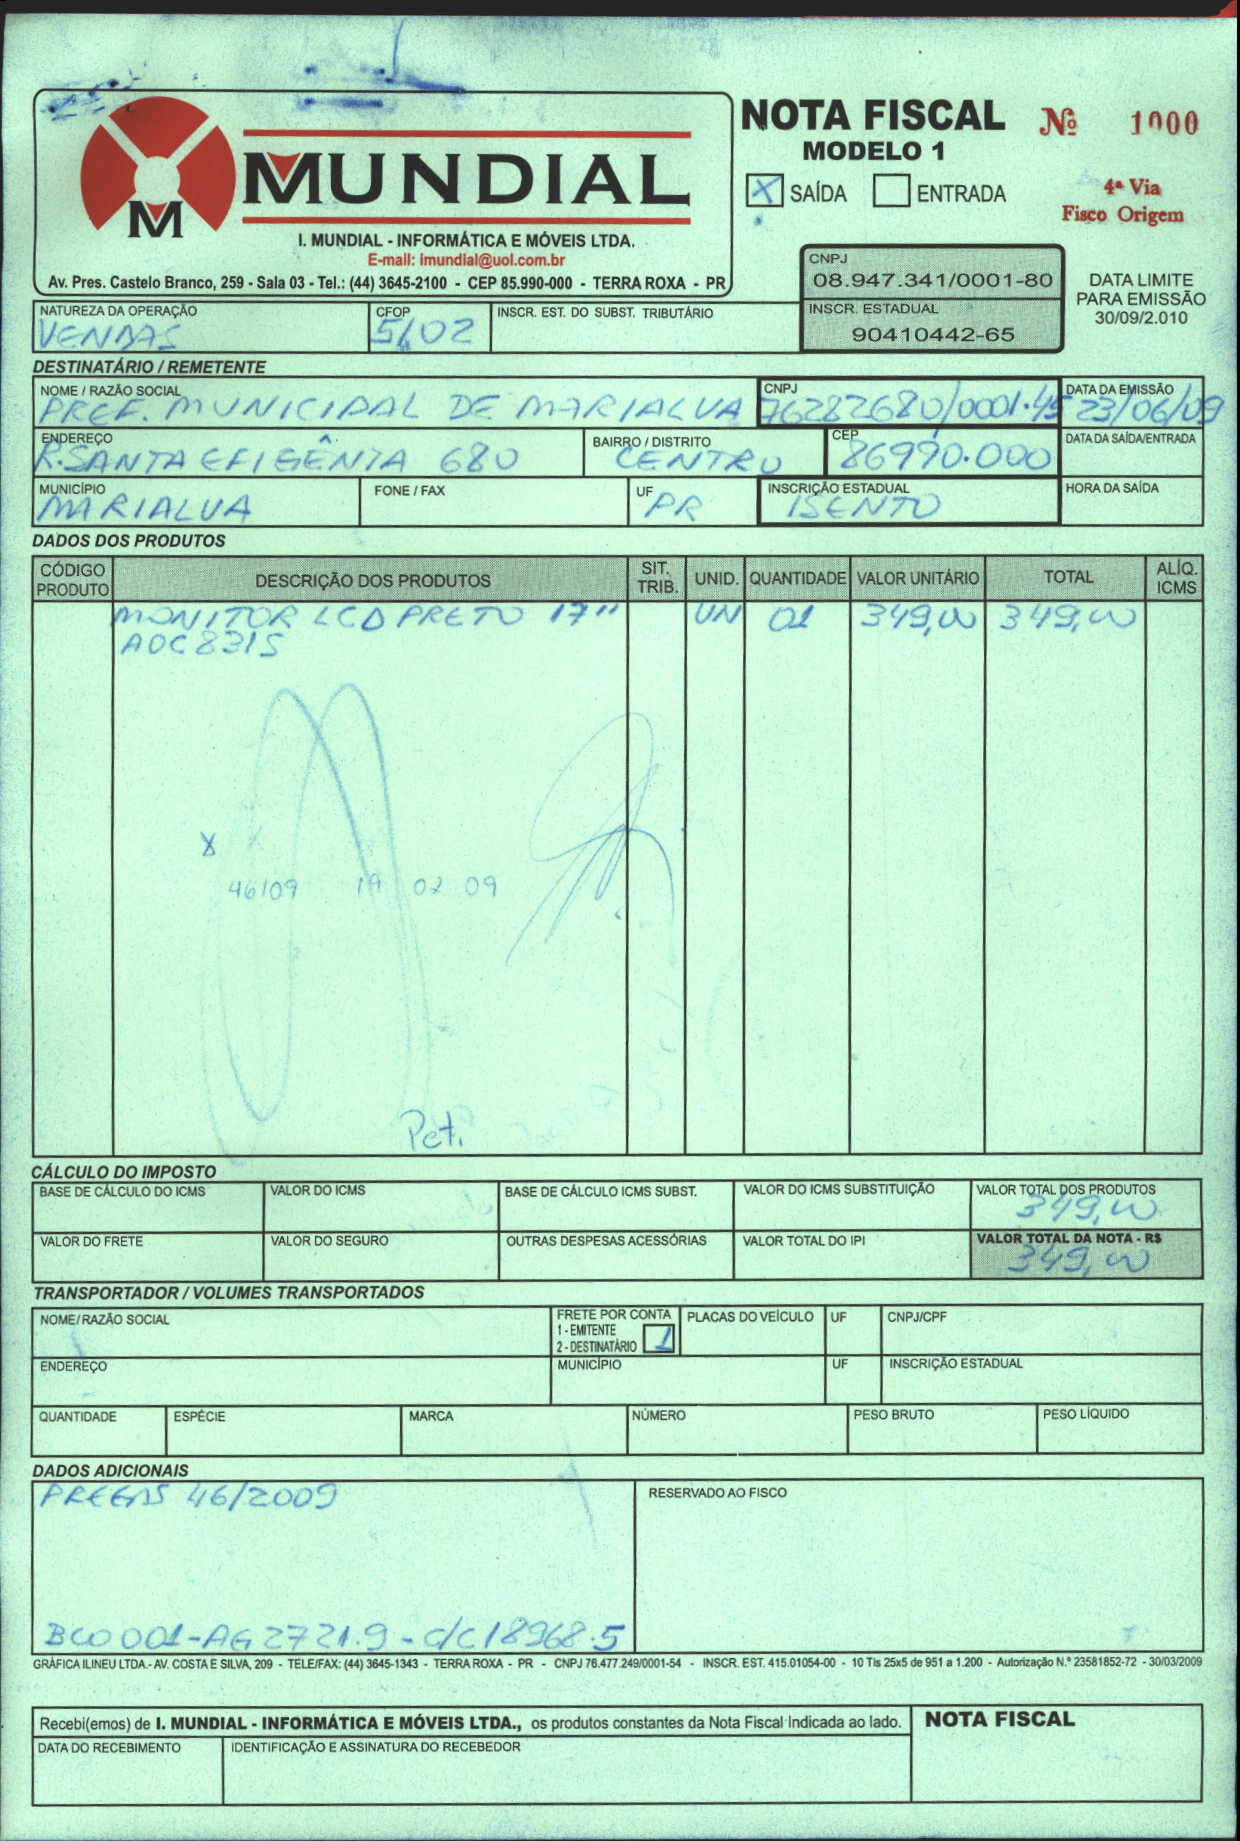 NOTA FISCAL Nº 1000
MODELO 1
X SAÍDA ENTRADA
4ª Via
Fisco Origem
MUNDIAL
M
I. MUNDIAL - INFORMÁTICA E MÓVEIS LTDA.
E-mail: imundial@uol.com.br
Av. Pres. Castelo Branco, 259 - Sala 03 - Tel.: (44) 3645-2100 - CEP 85.990-000 - TERRA ROXA - PR
CNPJ
08.947.341/0001-80
INSCR. ESTADUAL
90410442-65
DATA LIMITE
PARA EMISSÃO
30/09/2.010
NATUREZA DA OPERAÇÃO CFOP INSCR. EST. DO SUBST. TRIBUTÁRIO
VENDAS 5102
DESTINATÁRIO / REMETENTE
NOME / RAZÃO SOCIAL CNPJ DATA DA EMISSÃO
PREF. MUNICIPAL DE MARIALVA 76282680/0001-45 23/06/09
ENDEREÇO BAIRRO / DISTRITO CEP DATA DA SAÍDA/ENTRADA
R. SANTA EFIGÊNIA 680 CENTRO 86990.000
MUNICÍPIO FONE / FAX UF INSCRIÇÃO ESTADUAL HORA DA SAÍDA
MARIALVA PR ISENTO
DADOS DOS PRODUTOS
CÓDIGO PRODUTO DESCRIÇÃO DOS PRODUTOS SIT. TRIB. UNID. QUANTIDADE VALOR UNITÁRIO TOTAL ALÍQ. ICMS
MONITOR LCD PRETO 17" UN 01 349,00 349,00
AOC 831S
X
46/09 19 02 09
Pet.
CÁLCULO DO IMPOSTO
BASE DE CÁLCULO DO ICMS VALOR DO ICMS BASE DE CÁLCULO ICMS SUBST. VALOR DO ICMS SUBSTITUIÇÃO VALOR TOTAL DOS PRODUTOS
349,00
VALOR DO FRETE VALOR DO SEGURO OUTRAS DESPESAS ACESSÓRIAS VALOR TOTAL DO IPI VALOR TOTAL DA NOTA - R$
349,00
TRANSPORTADOR / VOLUMES TRANSPORTADOS
NOME/RAZÃO SOCIAL FRETE POR CONTA PLACAS DO VEÍCULO UF CNPJ/CPF
1 - EMITENTE
2 - DESTINATÁRIO 1
ENDEREÇO MUNICÍPIO UF INSCRIÇÃO ESTADUAL
QUANTIDADE ESPÉCIE MARCA NÚMERO PESO BRUTO PESO LÍQUIDO
DADOS ADICIONAIS
46/2009 RESERVADO AO FISCO
BCO 001-AG 2721.9 - C/C 18968.5
GRÁFICA ILINEU LTDA.- AV. COSTA E SILVA, 209 - TELE/FAX: (44) 3645-1343 - TERRA ROXA - PR - CNPJ 76.477.249/0001-54 - INSCR. EST. 415.01054-00 - 10 Tls 25x5 de 951 a 1.200 - Autorização N.º 23581852-72 - 30/03/2009
Recebi(emos) de I. MUNDIAL - INFORMÁTICA E MÓVEIS LTDA., os produtos constantes da Nota Fiscal Indicada ao lado. NOTA FISCAL
DATA DO RECEBIMENTO IDENTIFICAÇÃO E ASSINATURA DO RECEBEDOR